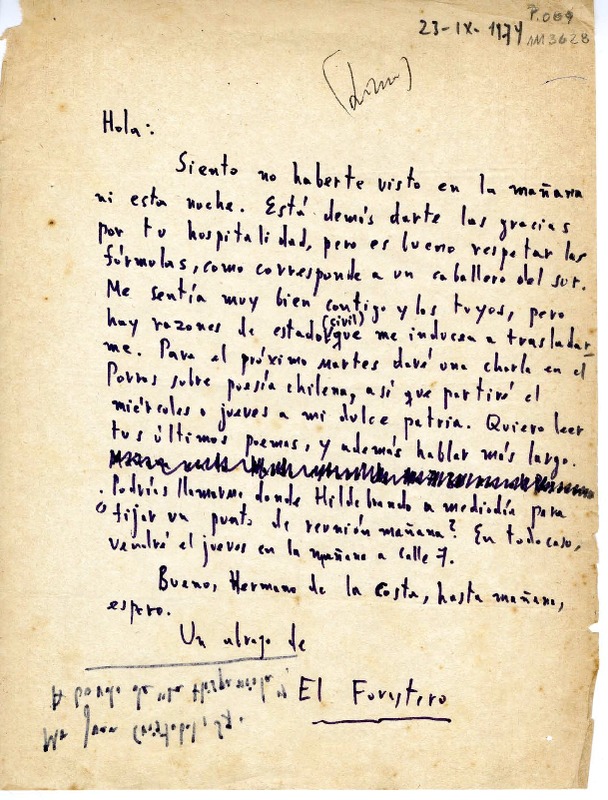 P.009
23-IX-1974 1M3628
Hola:
Siento no haberte visto en la mañana
ni esta noche. Está demás darte las gracias
por tu hospitalidad, pero es bueno respetar las
fórmulas, como corresponde a un caballero del sur.
Me sentía muy bien contigo y los tuyos, pero
(civil)
hay razones de estado que me inducen a trasladar-
me. Para el próximo martes daré una charla en el
Porras sobre poesía chilena, así que partiré el
miércoles o jueves a mi dulce patria. Quiero leer
tus últimos poemas, y además hablar más largo.
Podrías llamarme donde Hildebrando a mediodía para
fijar un punto de reunión mañana? En todo caso,
vendré el jueves en la mañana a Calle 7.
Bueno, Hermano de la Costa, hasta mañana,
espero.
Un abrazo de
El Forastero